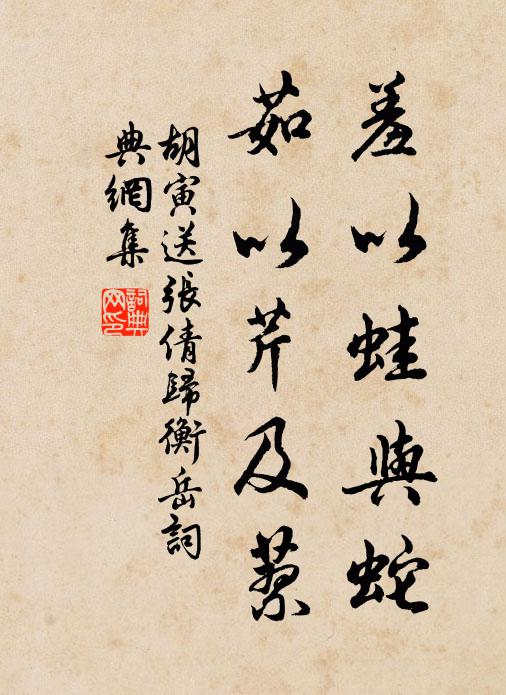 羞以蛙與蛇
茹以芹及蘩
胡寅送張倩歸衡岳詞
典網集
詞典網印